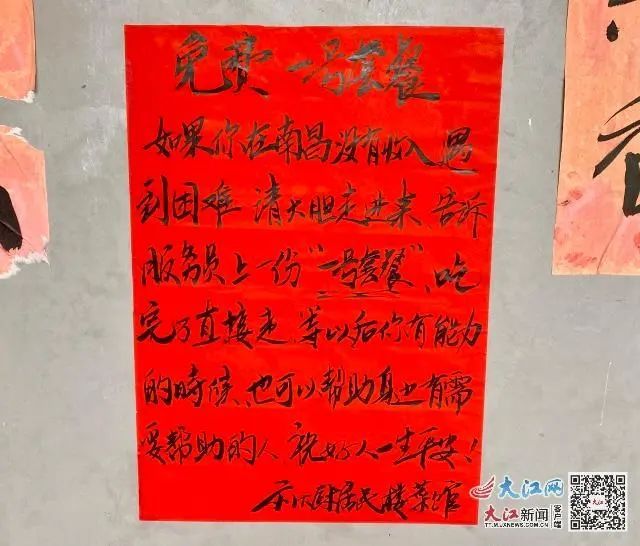 免费一号套餐
如果你在南昌没有收入 遇
到困难 请大胆走进来、告诉
服务员上一份“一号套餐”、吃
完了直接走、等以后你有能力
的時候、也可以帮助身边有需
要帮助的人、祝好人一生平安！
居民楼菜馆
大江网
大江新闻 客户端
TT.JXNEWS.COM.CN